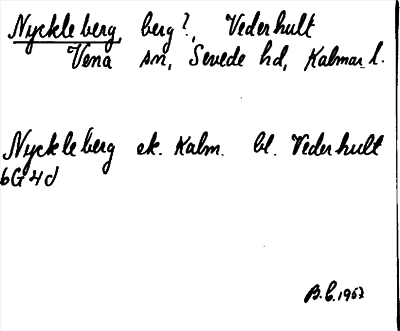 Nyckleberg, berg?, Vederhult
Vena sn, Sevede hd, Kalmar l.
Nyckleberg ek. Kalm. bl. Vederhult
6G4d
B.C. 1963